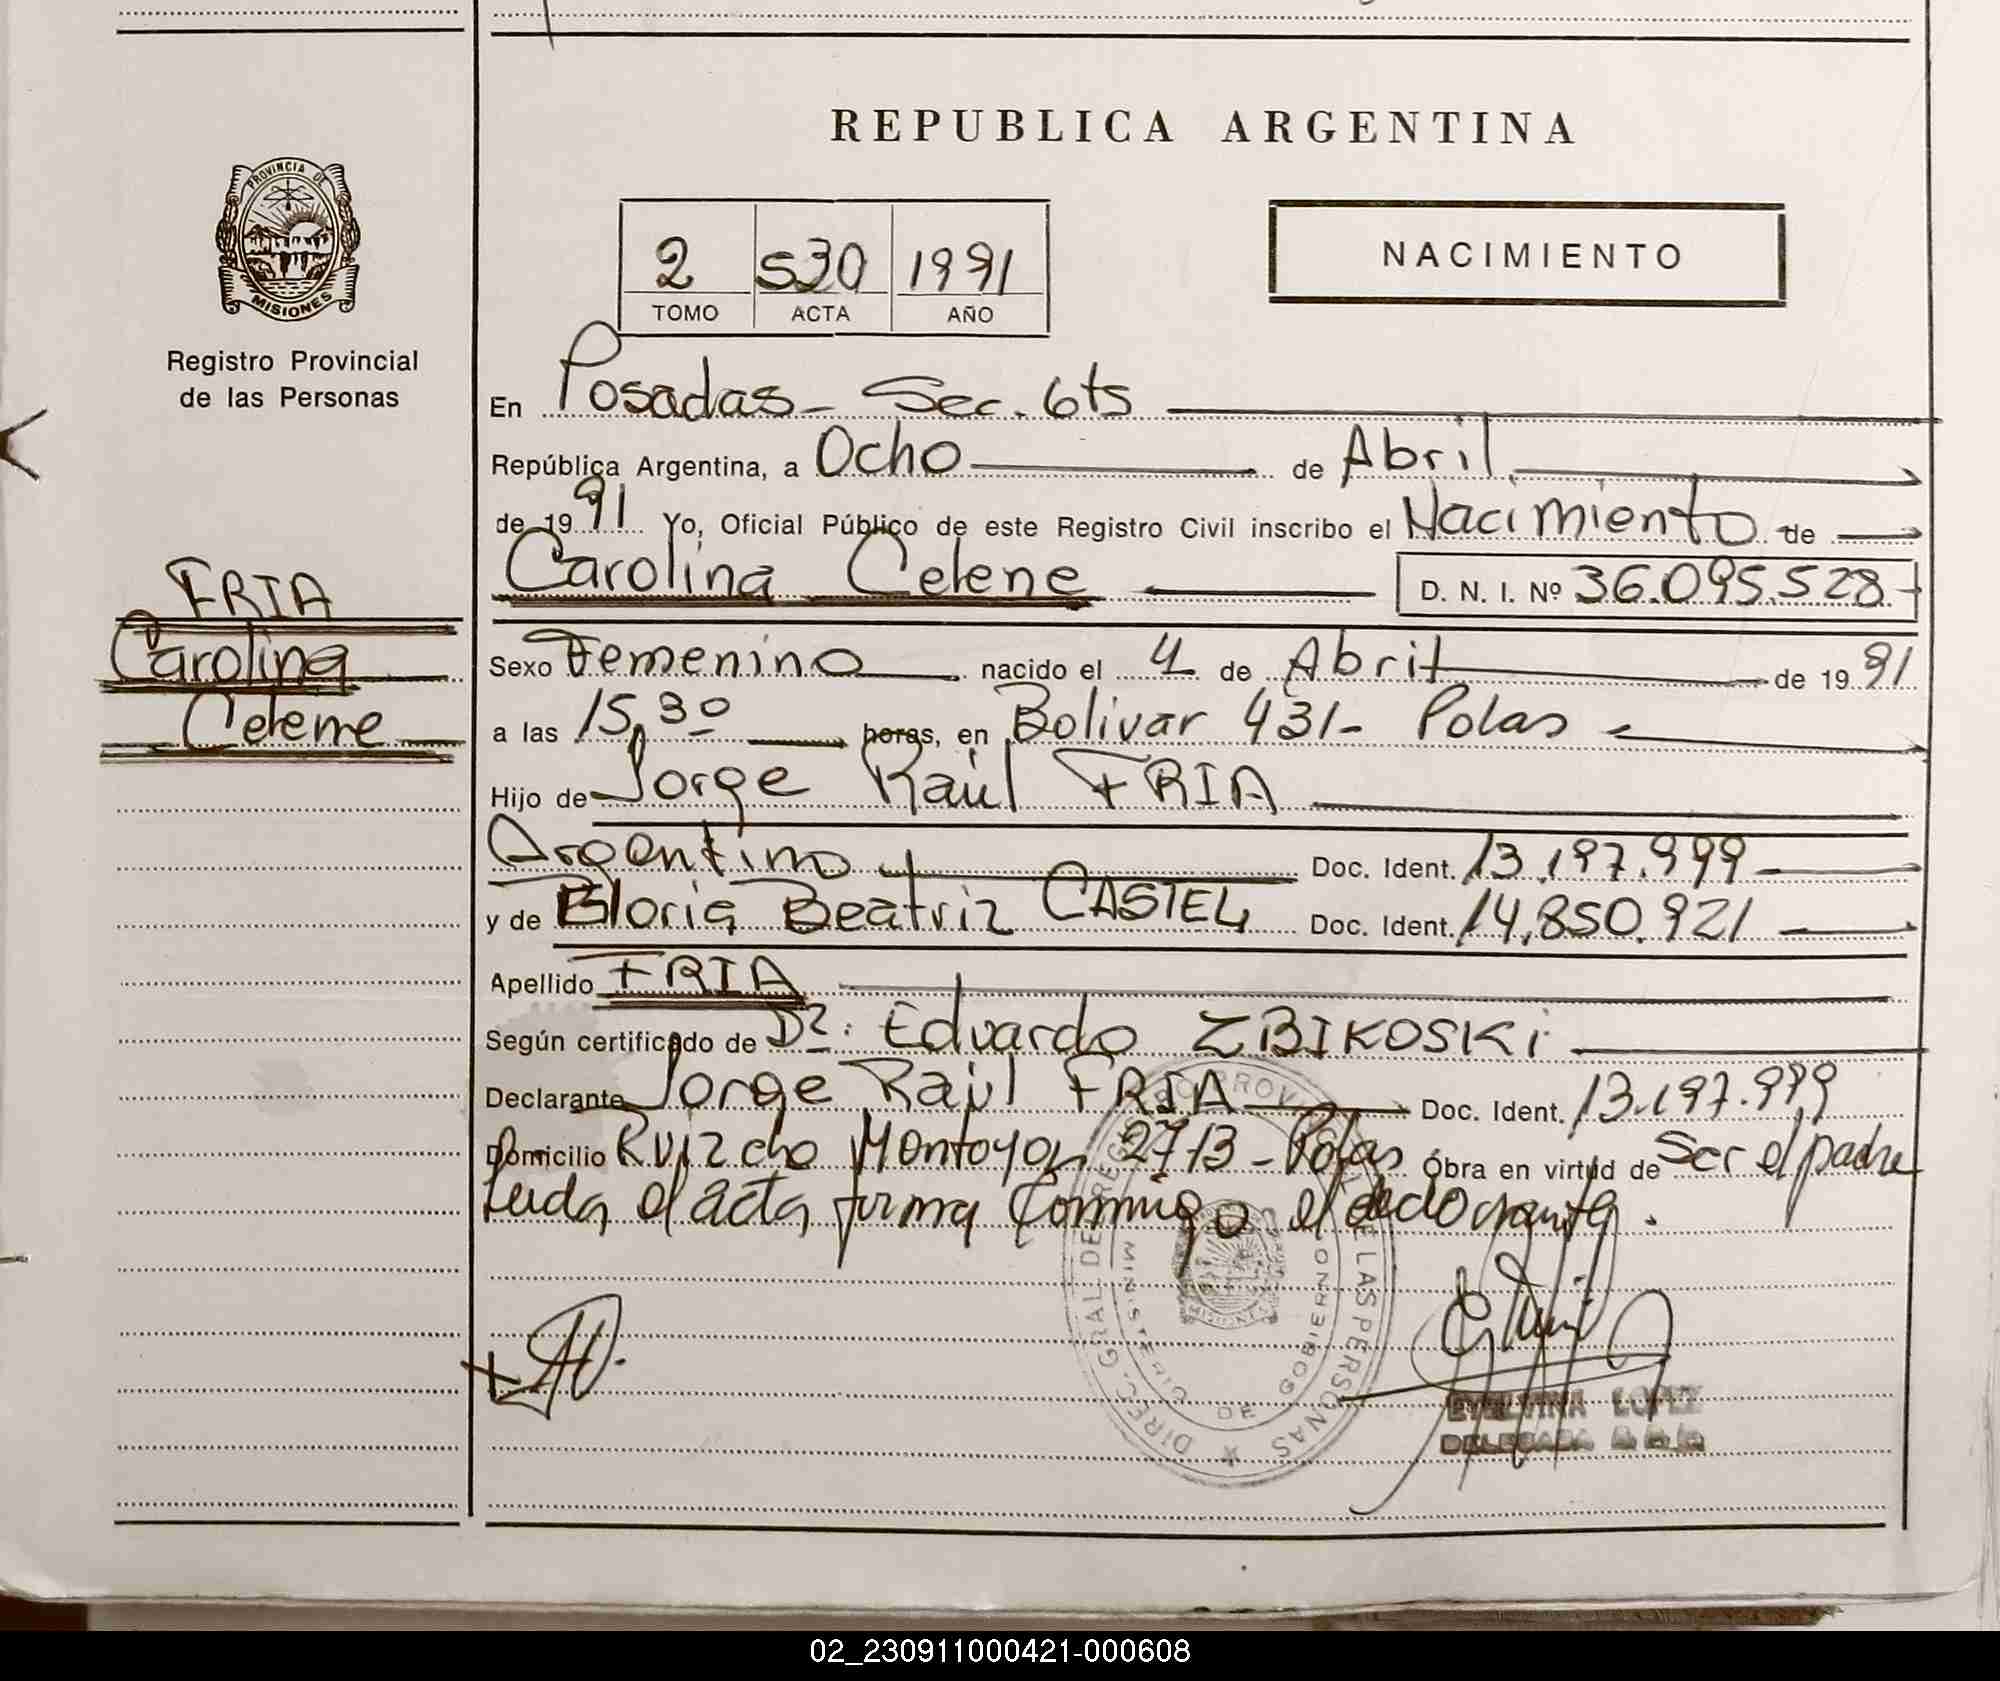 REPUBLICA ARGENTINA
PROVINCIA DE
MISIONES
Registro Provincial
de las Personas
NACIMIENTO
2 530 1991
TOMO ACTA AÑO
En Posadas - Sec. 6ts
República Argentina, a Ocho de Abril
de 1991 Yo, Oficial Público de este Registro Civil inscribo el Nacimiento de
Carolina Celene D. N. I. Nº 36.095.528
FRIA
Carolina
Celene
Sexo Femenino nacido el 4 de Abril de 1991
a las 15,30 horas, en Bolivar 431- Pdas
Hijo de Jorge Raúl FRIA
Argentino Doc. Ident. 13.197.999
y de Gloria Beatriz CASTEL Doc. Ident. 14,850.921
Apellido FRIA
Según certificado de Dr. Eduardo ZBIKOSKi
Declarante Jorge Raúl FRIA Doc. Ident. 13.197.999
Domicilio Ruiz Montoya 2713 - Pdas Obra en virtud de Ser el padre
Leida el acta firma conmigo el declarante.
DIREC. GRAL DE REGISTRO PROVINCIAL DE LAS PERSONAS
MINISTERIO DE GOBIERNO
MISIONES
LOPEZ
DELEGADA
02_230911000421-000608